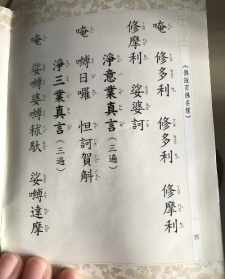 唵　修多利　修多利　修摩利
修摩利　娑婆訶
淨意業真言（三遍）
唵　嚩日囉　怛訶賀斛
淨三業真言（三遍）
唵　娑嚩婆嚩秫馱　娑嚩達摩